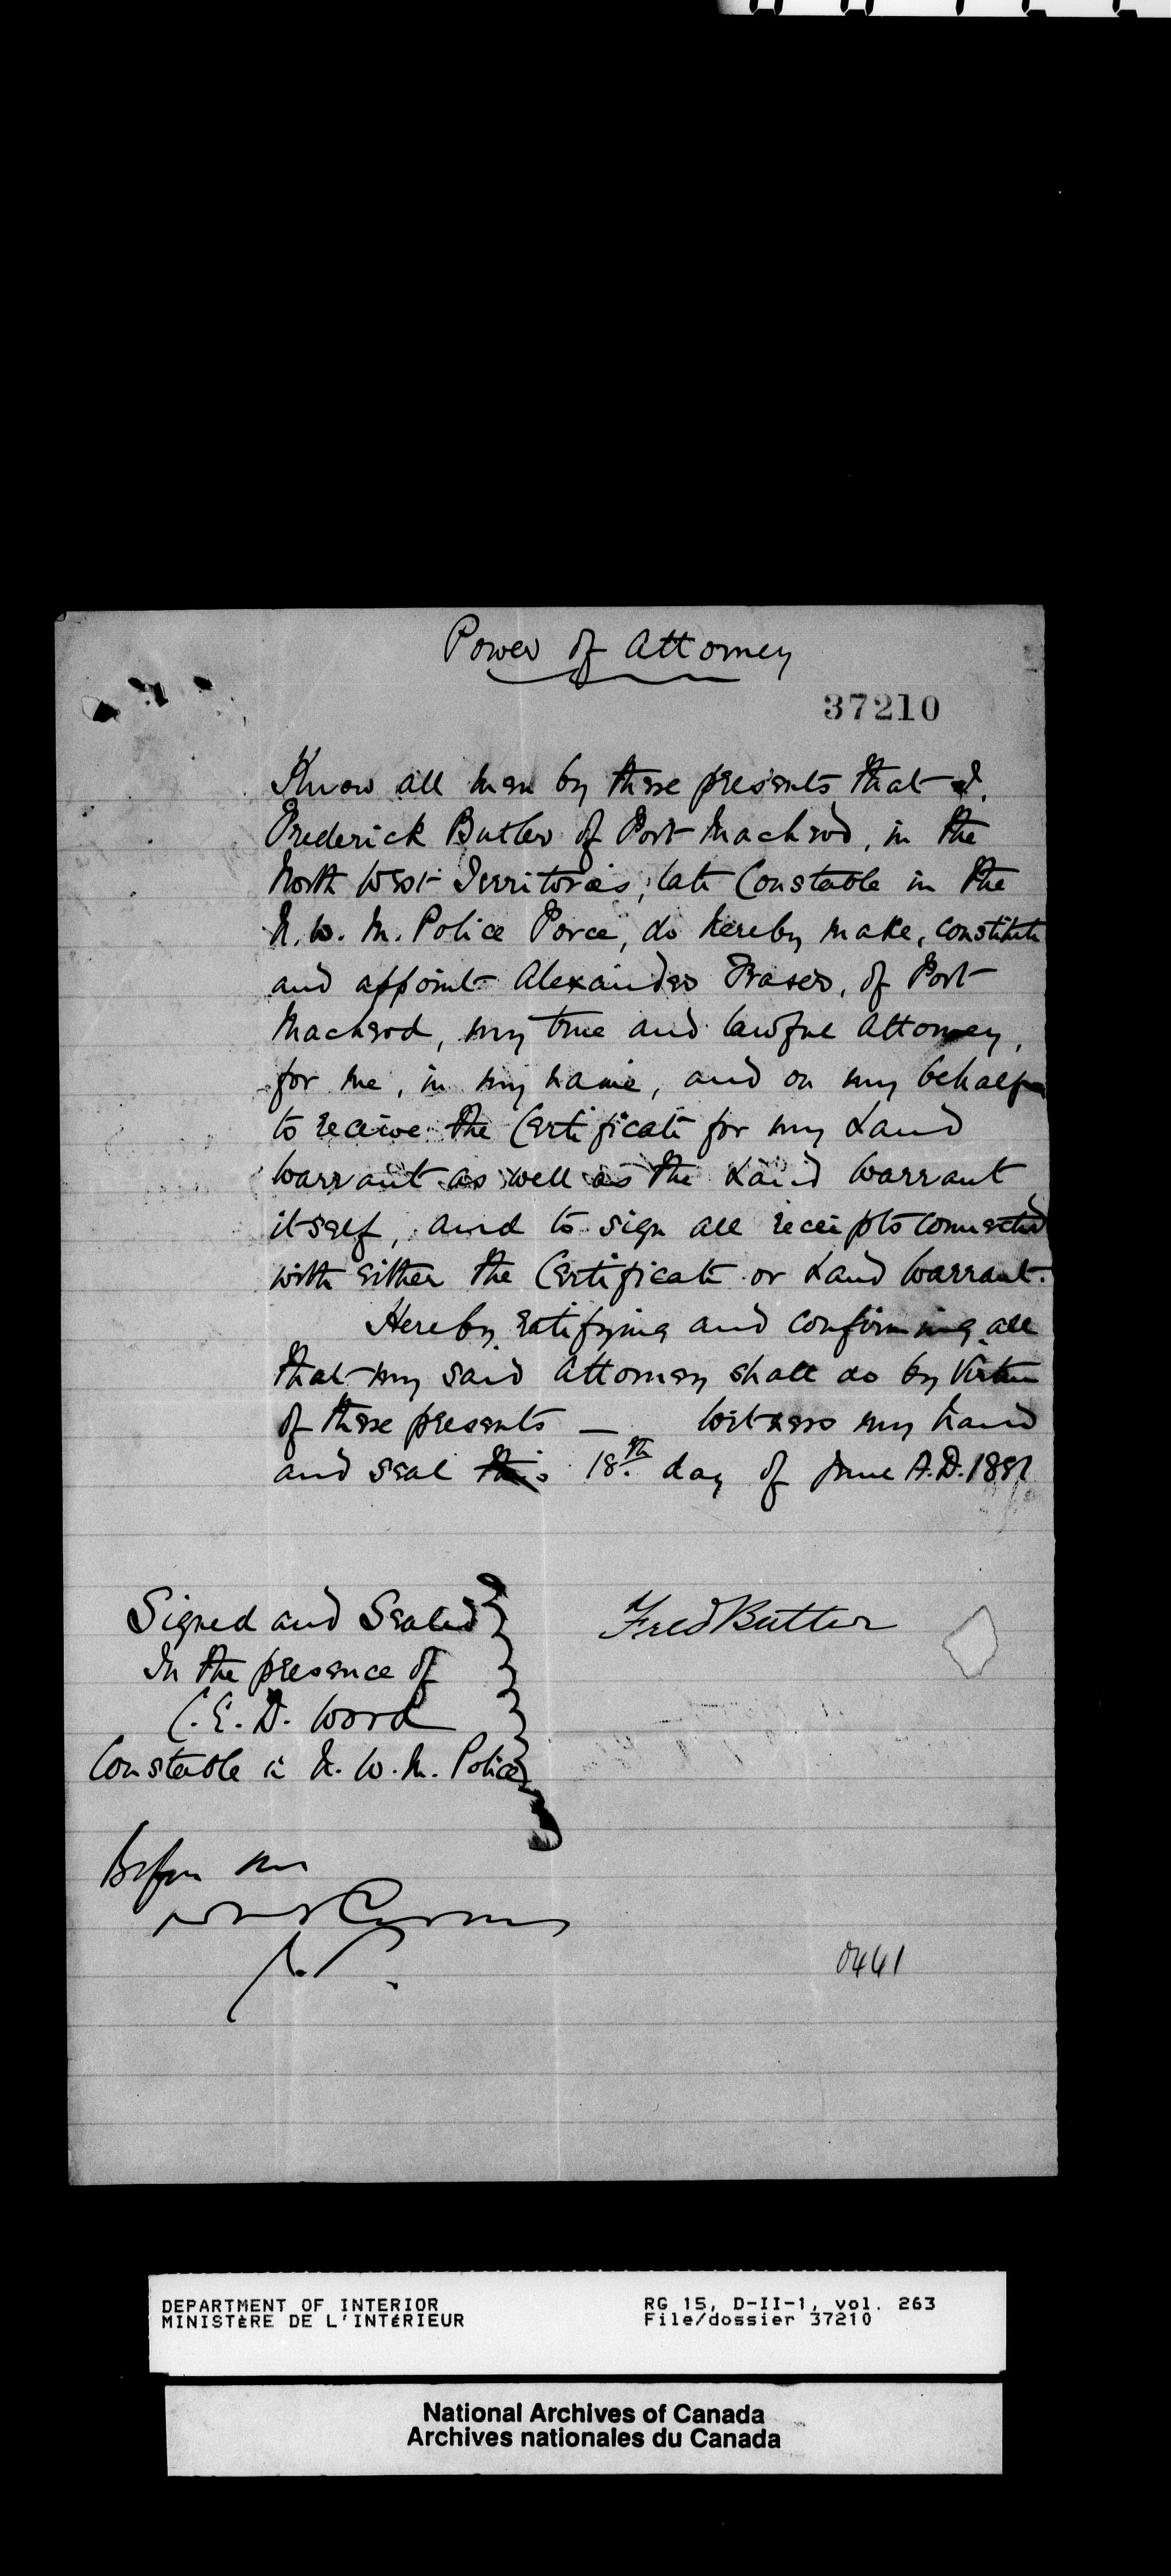 Power of Attorney
37210
Know all men by these presents that I.
Frederick Butler of Fort Macleod, in the
North West Territories, late Constable in the
N. W. M. Police Force, do hereby make, constitute
and appoint Alexander Fraser, of Fort
Macleod, my true and lawful Attorney,
for me, in my name, and on my behalf
to receive the Certificate for my Land
Warrant as well as the Land Warrant
itself, and to sign all receipts connected
with either the Certificate or Land Warrant.
Hereby ratifying and confirming all
that my said Attorney shall do by Virtue
of these presents — Witness my hand
and seal this 18th. day of June A.D. 1881
Signed and Sealed
In the presence of
C. E. D. Word
Constable in N. W. M. Police
Fred Butler
Before me
0441
DEPARTMENT OF INTERIOR
MINISTÈRE DE L'INTÉRIEUR
RG 15, D-II-1, vol. 263
File/dossier 37210
National Archives of Canada
Archives nationales du Canada